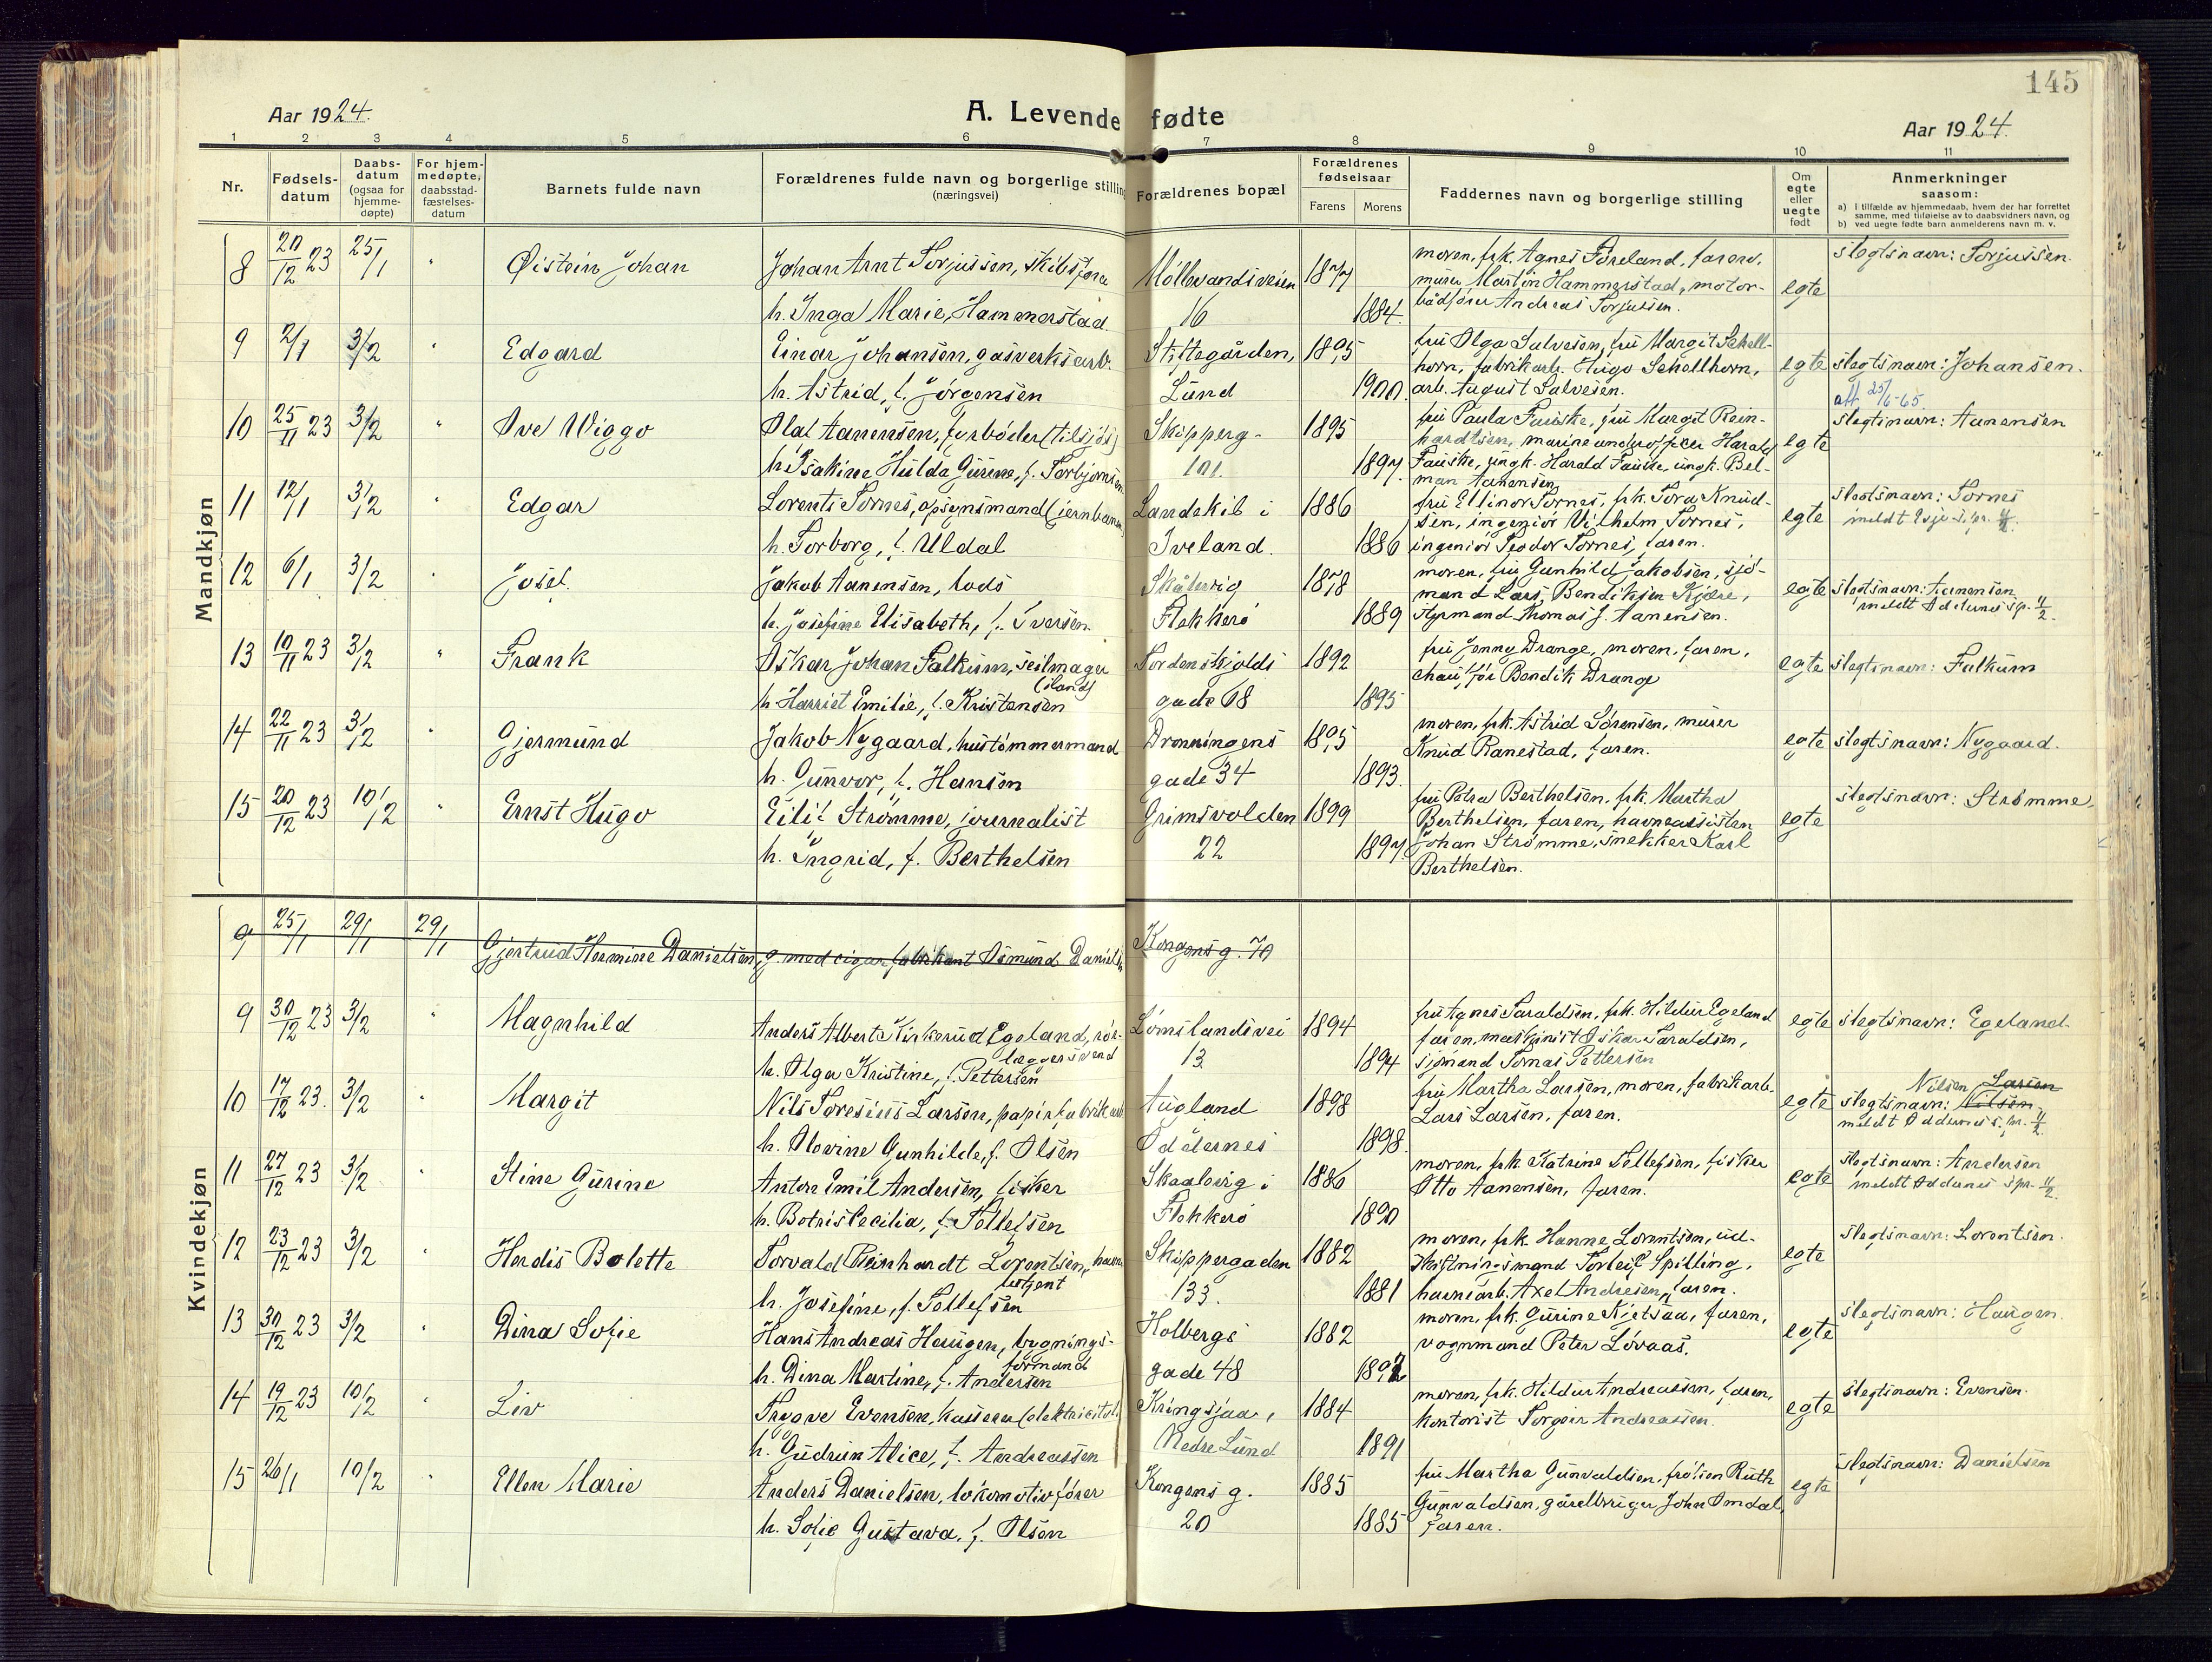 145
Aar 1924.
A. Levende fødte
Aar 1924.
1 2 3 4 5 6 7 8 9 10 11
Nr.
Fødsels-
datum
Daabs-
datum
(ogsaa for
hjemme-
døpte)
For hjem-
medøpte,
daabsstad-
fæstelses-
datum
Barnets fulde navn
Forældrenes fulde navn og borgerlige stilling
(næringsvei)
Forældrenes bopæl
Forældrenes
fødselsaar
Farens Morens
Faddernes navn og borgerlige stilling
Om
egte
eller
uegte
født
Anmerkninger
saasom:
a) i tilfælde av hjemmedaab, hvem der har forrettet
samme, med tilføielse av to daabsvidners navn, og
b) ved uegte fødte barn anmelderens navn m. v.
Mandkjøn
8 20/12 23 25/1 " Øistein Johan
Johan Arnt Torjussen, skibsfører
h. Inga Marie, Hammerstad.
Møllevandsveien
16
1877
1884.
moren, frk. Agnes Føreland, faren,
murer Martin Hammerstad, motor-
bådfører Andreas Torjussen.
egte
slegtsnavn: Torjussen.
9 2/1 3/2 " Edgard
Einar Johansen, gasverksarb.
h. Astrid, f. Jørgensen
Stiftegården,
Lund
1895
1900.
fru Olga Salvesen, fru Margit Schell-
horn, fabrikarb. Hugo Schellhorn,
arb. August Salvesen.
egte
slegtsnavn: Johansen.
att 25/6-65
10 25/11 23 3/2 " Ove Viggo
Olaf Aanensen, fyrbøder (tilsjøs)
h. Isakine Hulda Gurine, f. Torbjørnsen
Skipperg-
101.
1895
1897
fru Paula Fauske, fru Margit Rein-
hardtsen, marineunderofficer Harald
Fauske, ungk. Harald Fauske, ungk. Bel-
man Aanensen
egte
slegtsnavn: Aanensen
11 12/1 3/2 " Edgar
Lorents Tornes, opsynsmand (jernbanen)
h. Torborg, f. Uldal
Landskib i
Iveland.
1886
1886
fru Ellinor Tornes, frk. Tora Knud-
sen, ingeniør Vilhelm Tornes,
ingeniør Teodor Tornes, faren.
egte
slegtsnavn: Tornes
12 6/1 3/2 " Josef
Jakob Aanensen, lods
h. Josefine Elisabeth, f. Iversen.
Skålevig
Flekkerø
1878
1889
moren, fru Gunhild Jakobsen, sjø-
mand Lars Bendiksen Kjære,
styrmand Thomas J. Aanensen.
egte
slegtsnavn: Aanensen
meldt Oddernes spr. 4/2.
13 10/11 23 3/2 " Frank
Oskar Johan Falkum, seilmager
(iland)
h. Harriet Emilie, f. Kristensen
Tordenskjolds
gade 68
1892
1895
fru Jenny Drange, moren, faren,
chauffør Bendik Drange
egte
slegtsnavn: Falkum
14 22/11 23 3/2 " Gjermund
Jakob Nygaard, hustømmermand
h. Gunvor, f. Hansen
Dronningens
gade 34
1895
1893.
moren, frk. Astrid Sørensen, murer
Knud Ranestad, faren.
egte
slegtsnavn: Nygaard.
15 20/12 23 10/2 " Ernst Hugo
Eilif Strømme, journalist
h. Ingrid, f. Berthelsen
Grimsvolden
22
1899
1897.
fru Petra Berthelsen, frk. Martha
Berthelsen, faren, havneassistent
Johan Strømme, snekker Karl
Berthelsen.
egte
slegtsnavn: Strømme.
Kvindekjøn
9 25/1 29/1 29/1 Gjertrud Hermine Danielsen, g. med cigarfabrikant Osmund Danielsen Kongensg. 70
9 30/12 23 3/2 " Magnhild
Anders Albert Kirkerud Egeland, rør-
læggersvend
h. Olga Kristine, f. Pettersen
Lømslandsvei
13.
1894
1894
fru Agnes Taraldsen, frk. Hildur Egeland
faren, maskinist Oskar Taraldsen,
sjømand Tomas Pettersen
egte
slegtsnavn: Egeland.
10 17/12 23. 3/2 " Margit
Nils Toresius Larsen, papirfabrikarb
h. Olovine Gunhilde, f. Olsen
Augland
Oddernes
1898
1898.
fru Martha Larsen, moren, fabrikarb.
Lars Larsen, faren.
egte
Nilsen Larsen
slegtsnavn: Nilsen
meldt Oddernes spr. 4/2.
11 27/12 23 3/2 " Stine Gurine
Anton Emil Andersen, fisker
h. Botris Cecilia, f. Tellefsen
Skaalevig i
Flekkerø
1886
1890
moren, frk. Katrine Tellefsen, fisker
Otto Aanensen, faren.
egte
slegtsnavn: Andersen
meldt Oddernes spr. 4/2.
12 23/12 23 3/2 " Herdis Bolette
Torvald Reinhardt Lorentsen, havne
betjent
h. Josefine, f. Tellefsen
Skippergaden
133.
1882
1881
moren, frk. Hanne Lorentsen, ud-
skiftningsmand Torleif Spilling,
havnearb. Axel Andresen, faren.
egte
slegtsnavn: Lorentsen.
13 30/12 23 3/2 " Dina Sofie
Hans Andreas Haugen, bygnings-
formand
h. Dina Martine, f. Andersen
Holbergs
gade 48
1882
moren, frk. Gurine Kjetsaa, faren,
vognmand Peter Løvaas.
egte
slegtsnavn: Haugen.
14 19/12 23 10/2 " Liv
Trygve Evensen, kasserer (elektricitet.
h. Gudrun Alice, f. Andreassen
Kringsjaa,
Nedre Lund
1884
1891
moren, frk. Hildur Andreassen, faren,
kontorist Torgeir Andreassen.
egte
slegtsnavn: Evensen.
15 26/1 10/2 " Ellen Marie
Anders Danielsen, lokomotivfører
h. Sofie Gustava, f. Olsen
Kongens g.
20
1885
1885
fru Martha Gunvaldsen, frøken Ruth
Gunvaldsen, gårdbruger John Omdal,
faren.
egte
slegtsnavn: Danielsen